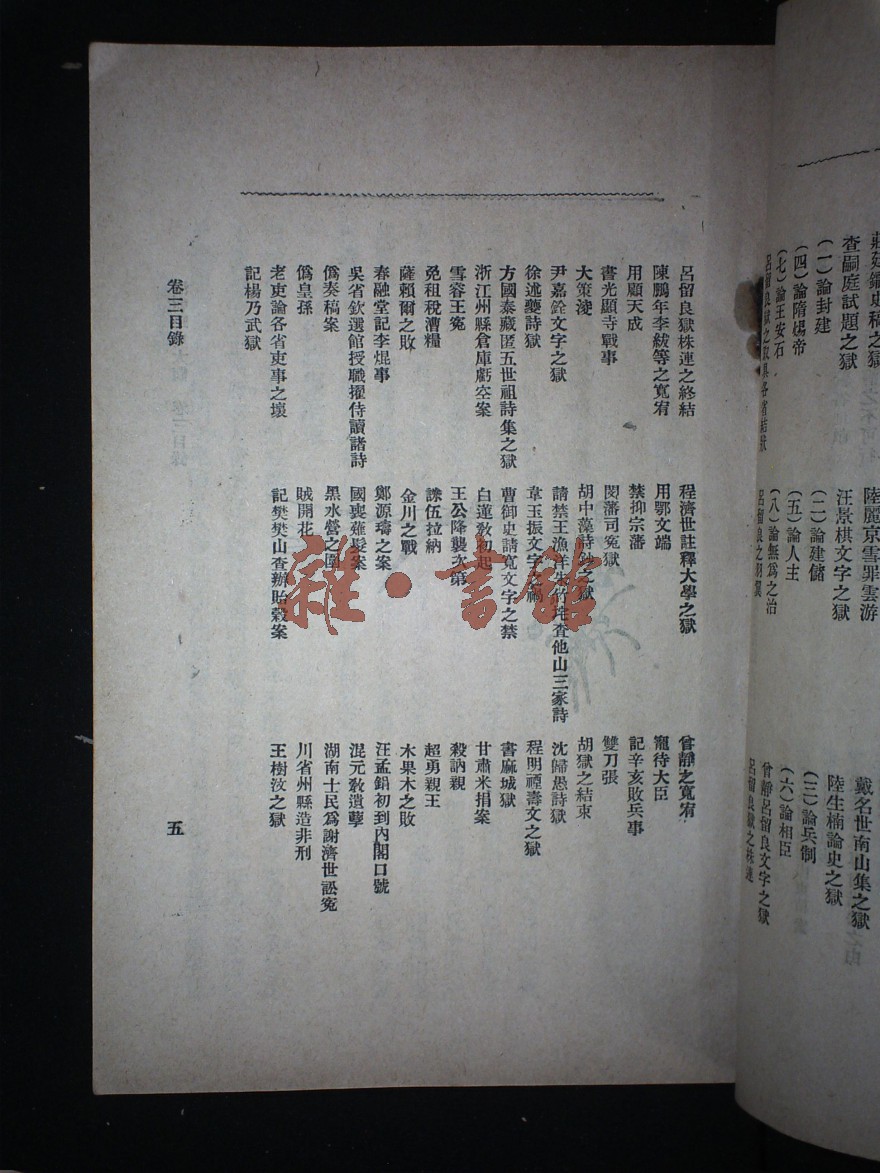 莊廷鑨史稿之獄
陸麗京雪罪雲游
戴名世南山集之獄
查嗣庭試題之獄
汪景祺文字之獄
陸生楠論史之獄
（一）論封建
（二）論建儲
（三）論兵制
（四）論隋煬帝
（五）論人主
（六）論相臣
（七）論王安石
（八）論無爲之治
曾靜呂留良文字之獄
呂留良獄之取具各省結狀
呂留良之羽翼
呂留良獄之株連
呂留良獄株連之終結
程濟世註釋大學之獄
曾靜之寬宥
陳鵬年李紱等之寬宥
用鄂文端
寵待大臣
用顧天成
禁抑宗藩
記辛亥敗兵事
書光顯寺戰事
閔藩司寃獄
雙刀張
大策淩
胡中藻詩鈔之獄
胡獄之結束
尹嘉銓文字之獄
請禁王漁洋朱竹垞查他山三家詩
沈歸愚詩獄
徐述夔詩獄
韋玉振文字之禍
程明禋壽文之獄
方國泰藏匿五世祖詩集之獄
曹御史請寬文字之禁
書麻城獄
浙江州縣倉庫虧空案
白蓮敎初起
甘肅米捐案
雪容王寃
王公降襲次第
殺訥親
免租稅漕糧
誅伍拉納
超勇親王
薩賴爾之敗
金川之戰
木果木之敗
春融堂記李焜事
鄭源璹之案
汪孟鋗初到內閣口號
吳省欽選館授職擢侍讀諸詩
國喪薙髮案
混元敎遺孽
僞奏稿案
黑水營之圍
湖南士民爲謝濟世訟寃
僞皇孫
賊開花
川省州縣造非刑
老吏論各省吏事之壞
記樊樊山查辦貽穀案
王樹汶之獄
記楊乃武獄
卷三目錄
五
雜·書館